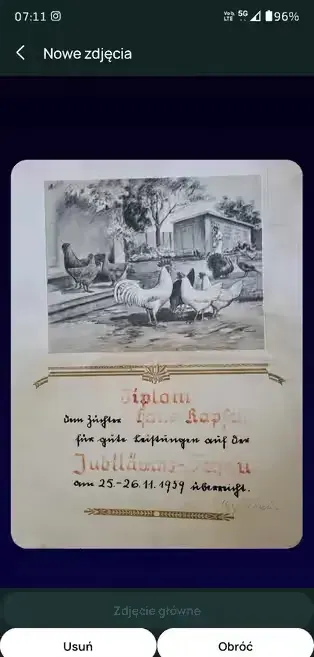 07:11
Vo)) LTE 5G 96%
Nowe zdjęcia
Diplom
dem Züchter Hans
für gute Leistungen auf der
Jubiläums-Schau
am 25.-26.11.1939 überreicht.
Zdjęcie główne
Usuń
Obróć